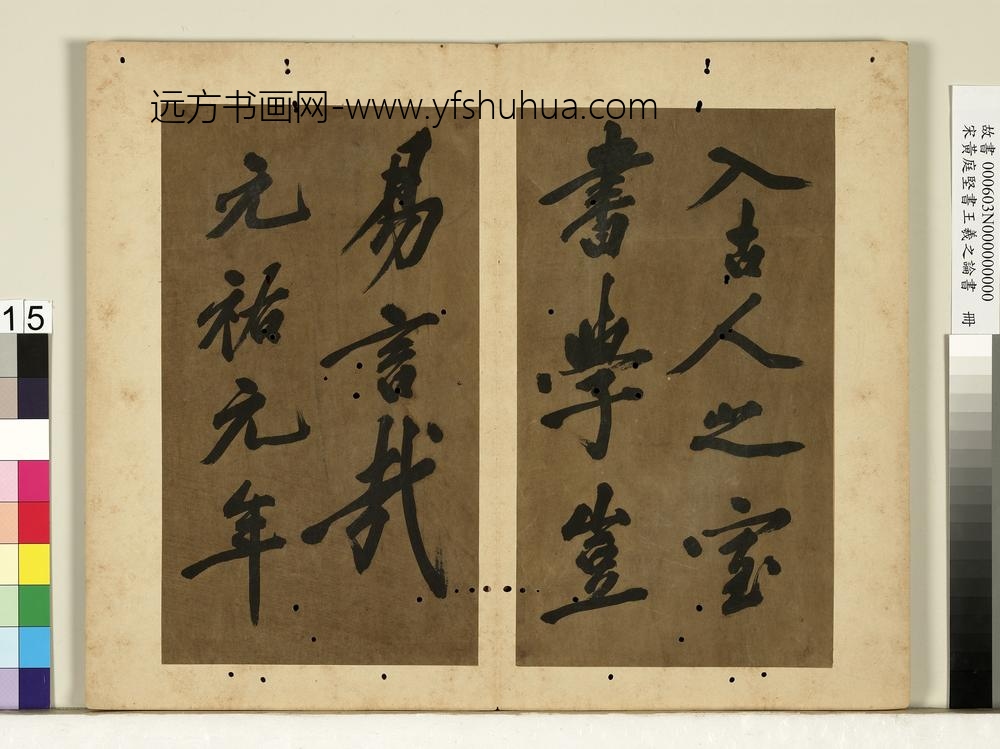 远方书画网-www.yfshuhua.com
入古人之室
書學豈
易言哉
元祐元年
故書 000603N000000000
宋黃庭堅書王羲之論書 冊
15